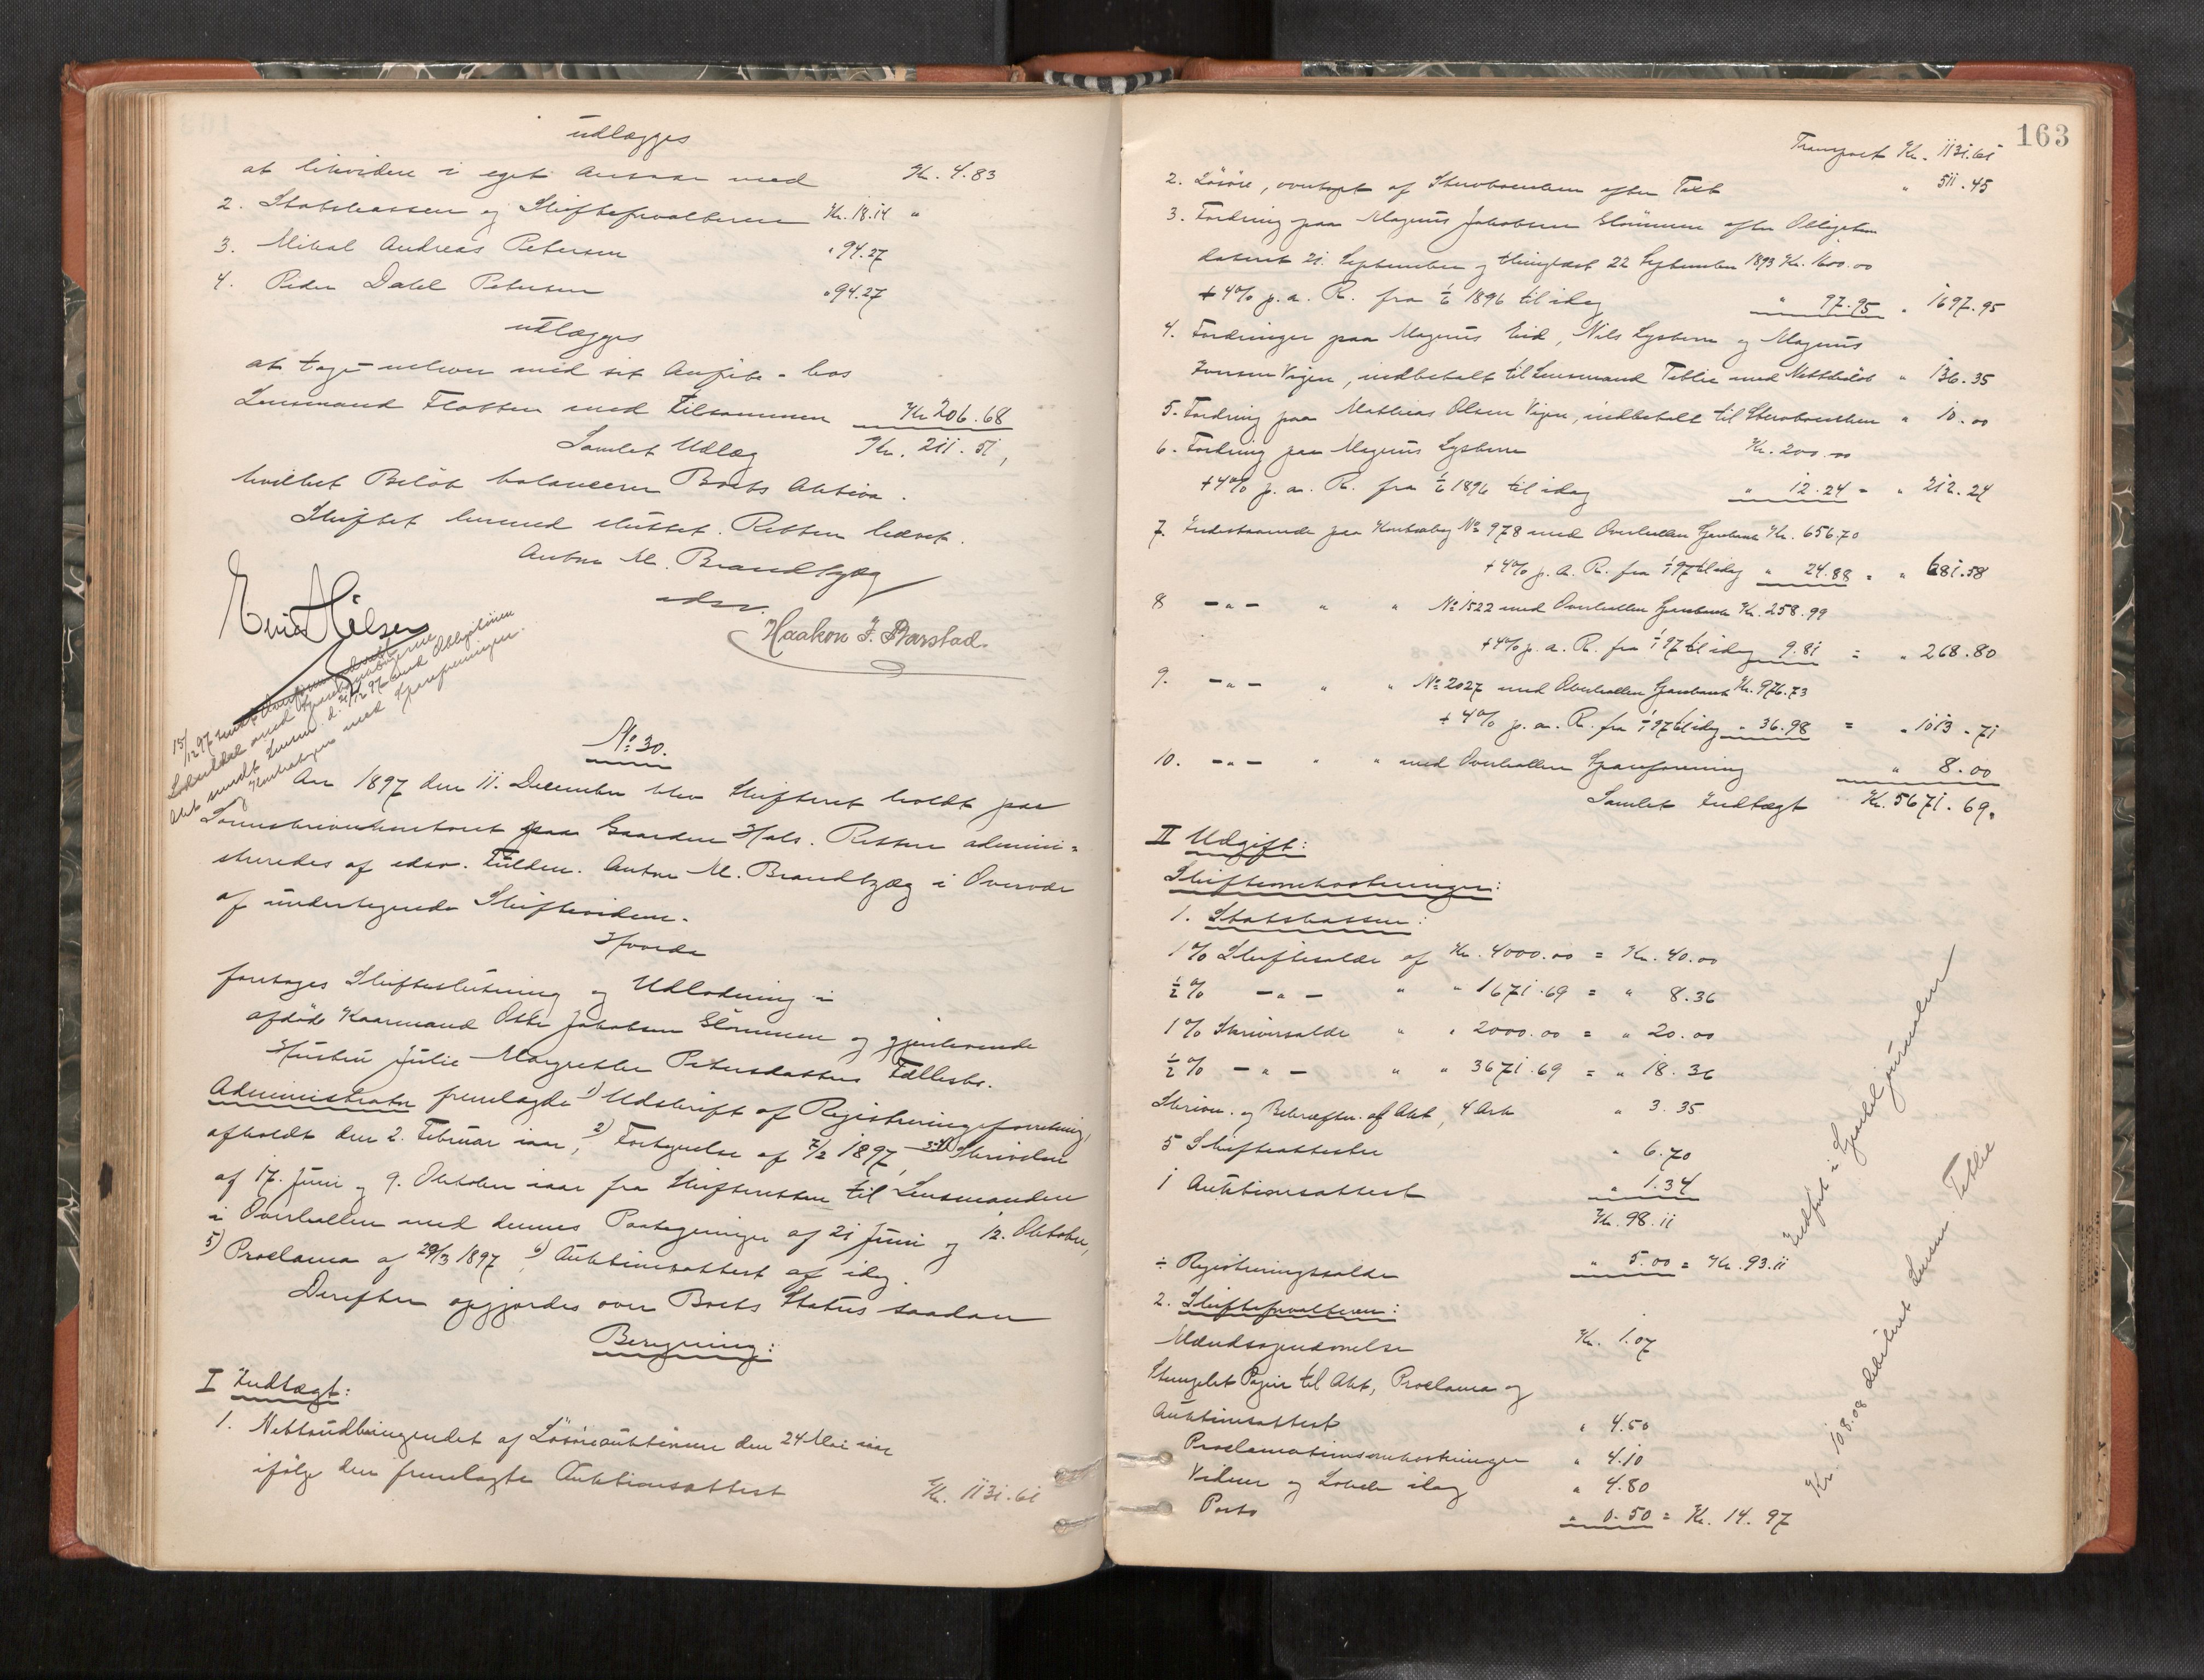 udlægges
at likvidere i eget Ansvar med Kr. 4.83
2. Statskassen og Skifteforvalteren Kr. 18.14 "
3. Mikal Andreas Petersen " 94.27
4. Peder Dahl Petersen " 94.27
udlægges
at tage udover med sit Anfør - hos
Lensmand Flotten med Tilsammen Kr 206.68
Samlet Udlæg Kr. 211.51,
hvilket Beløb balancerer Boets Aktiva.
Skiftet hermed sluttet. Retten hævet.
Anton M. Brandtzæg
edsv.
Eric Nilsen
Haakon F. Barstad
No. 30.
Aar 1897 den 11. December blev Skifteret holdt paa
Sorenskriverkontoret paa Gaarden Hals. Retten admini=
streredes af edsv. Fuldm. Anton M. Brandtzæg i Overvær
af undertegnede Skiftevidner.
Hvorda
foretoges Skifteslutning og Udlodning i
afdøde Kaarmand Otte Jakobsen Glømmen og gjenlevende
Hustru Julie Margrethe Petersdatters Fællesbo.
Administrator fremlagde 1) Udskrift af Registreringsforretning,
afholdt den 2. Februar iaar, 2) Fortegnelse af 7/2 1897, 3-4) Skrivelser
af 17. Juni og 9. Oktober iaar fra Skifteretten til Lensmanden
i Overhallen med dennes Paategninger af 21 Juni og 12. Oktober,
5) Proclama af 29/3 1897, 6) Auktionsattest af idag.
Derefter opgjordes over Boets Status saadan
Beregning:
I Indtægt:
1. Nettoudbringendet af Løsøreauktionen den 24 Mai iaar
ifølge den fremlagte Auktionsattest Kr. 1131.61
163
Transport Kr. 1131.61
2. Løsøre, overtaget af Sterboenken efter Taxt " 511.45
3. Fordring paa Magnus Jakobsen Glømmen efter Obligation
dateret 21. September og thinglæst 22 September 1893 Kr. 1600.00
+ 4% p.a. R. fra 1/6 1896 til idag " 97.95 " 1697.95
4. Fordringer paa Magnus Eid, Nils Lysberg og Magnus
Jonsen Vigen, indbetalt til Lensmand Tetlie med Nettobeløb " 136.35
5. Fordring paa Mathias Olsen Vigen, indbetalt til Sterboenken " 10.00
6. Fordring paa Magnus Lysberg Kr. 200.00
+ 4% p.a. R. fra 1/6 1896 til idag " 12.24 = " 212.24
7. Indestaaende paa Kontrabog No 978 med Overhallen Sparebank Kr. 656.70
+ 4% p.a. R. fra 1/1 97 til idag " 24.88 = " 681.58
8 - " - " " No 1522 med Overhallen Sparebank Kr. 258.99
+ 4% p.a. R. fra 1/1 97 til idag 9.81 = " 268.80
9. - " - " " No 2027 med Overhallen Sparebank Kr. 976.73
+ 4% p.a. R. fra 1/1 97 til idag " 36.98 = " 1013.71
10. - " - " " med Overhallen Spareforening " 8.00
Samlet Indtægt Kr. 5671.69.
II Udgift:
Skifteomkostninger:
1. Statskassen:
1% Skiftesalær af Kr. 4000.00 = Kr. 40.00
1/2 % - " - " " 1671.69 = " 8.36
1% Skriversalær " " 2000.00 = " 20.00
1/2 % - " - " " 3671.69 = " 18.36
Skrivn. og Bekræftn. af Akt, 4 Ark " 3.35
5 Skifteattester " 6.70
1 Auktionsattest " 1.34
Kr. 98.11
÷ Registreringssalær " 5.00 = Kr. 93.11
2. Skifteforvalteren:
Mændsopnævnelse Kr. 1.07
Stemplet Papir til Akt, Proclama og
Auktionsattest " 4.50
Proclamationsomkostninger " 4.10
Vidner og Lokale idag " 4.80
Porto " 0.50 = Kr. 14.97
Indført i Sportel journalen
Kr. 108.08 debiteret Lensm. Tetlie